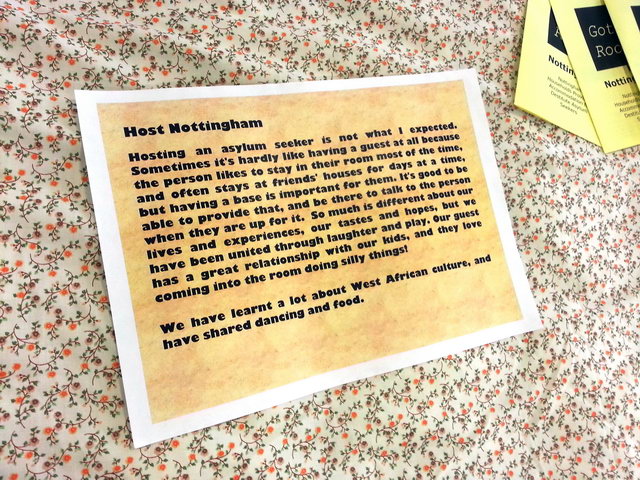 Host Nottingham
Hosting an asylum seeker is not what I expected.
Sometimes it's hardly like having a guest at all because
the person likes to stay in their room most of the time,
and often stays at friends' houses for days at a time,
but having a base is important for them. It's good to be
able to provide that, and be there to talk to the person
when they are up for it. So much is different about our
lives and experiences, our tastes and hopes, but we
have been united through laughter and play. Our guest
has a great relationship with our kids, and they love
coming into the room doing silly things!
We have learnt a lot about West African culture, and
have shared dancing and food.
Got
Roo
Nottin